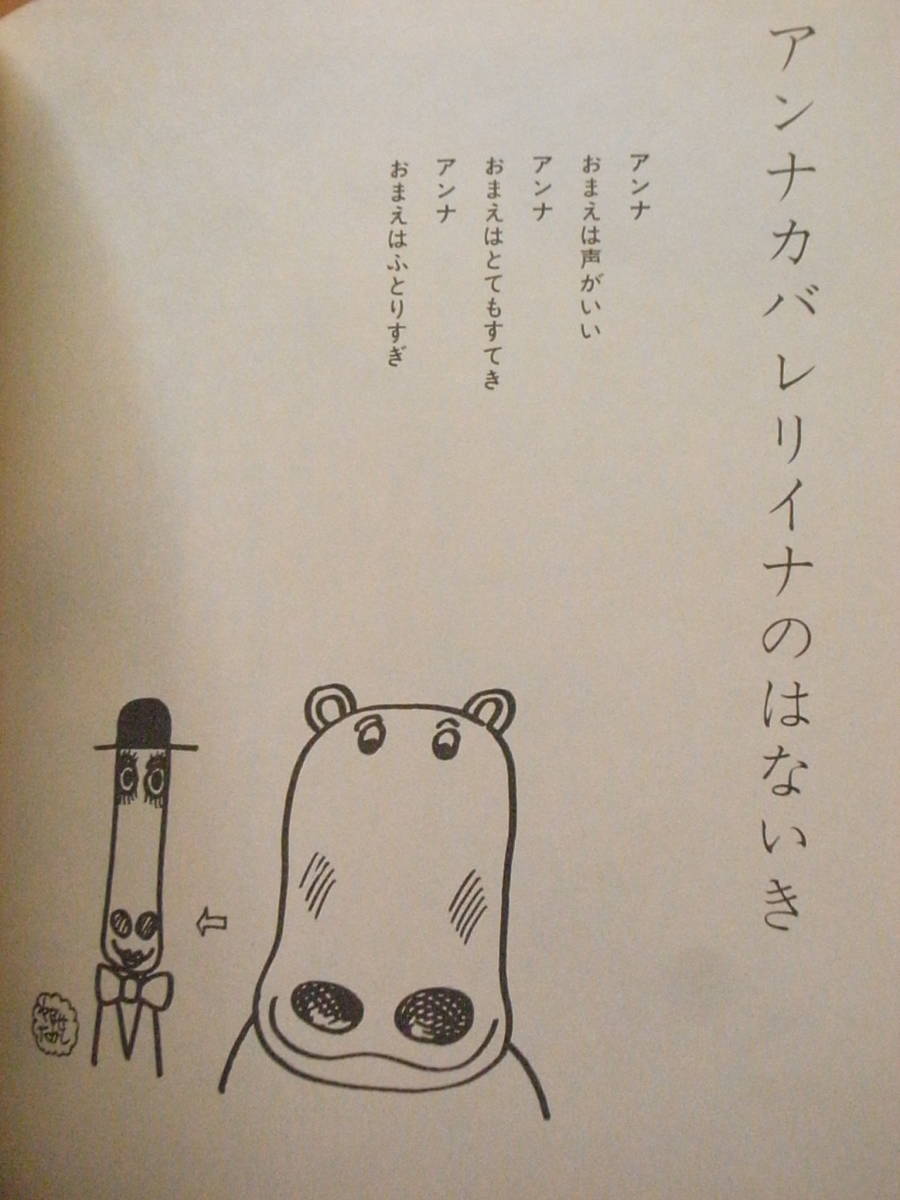 アンナカバレリイナのはないき
アンナ
おまえは声がいい
アンナ
おまえはとてもすてき
アンナ
おまえはふとりすぎ
やなせ
たかし